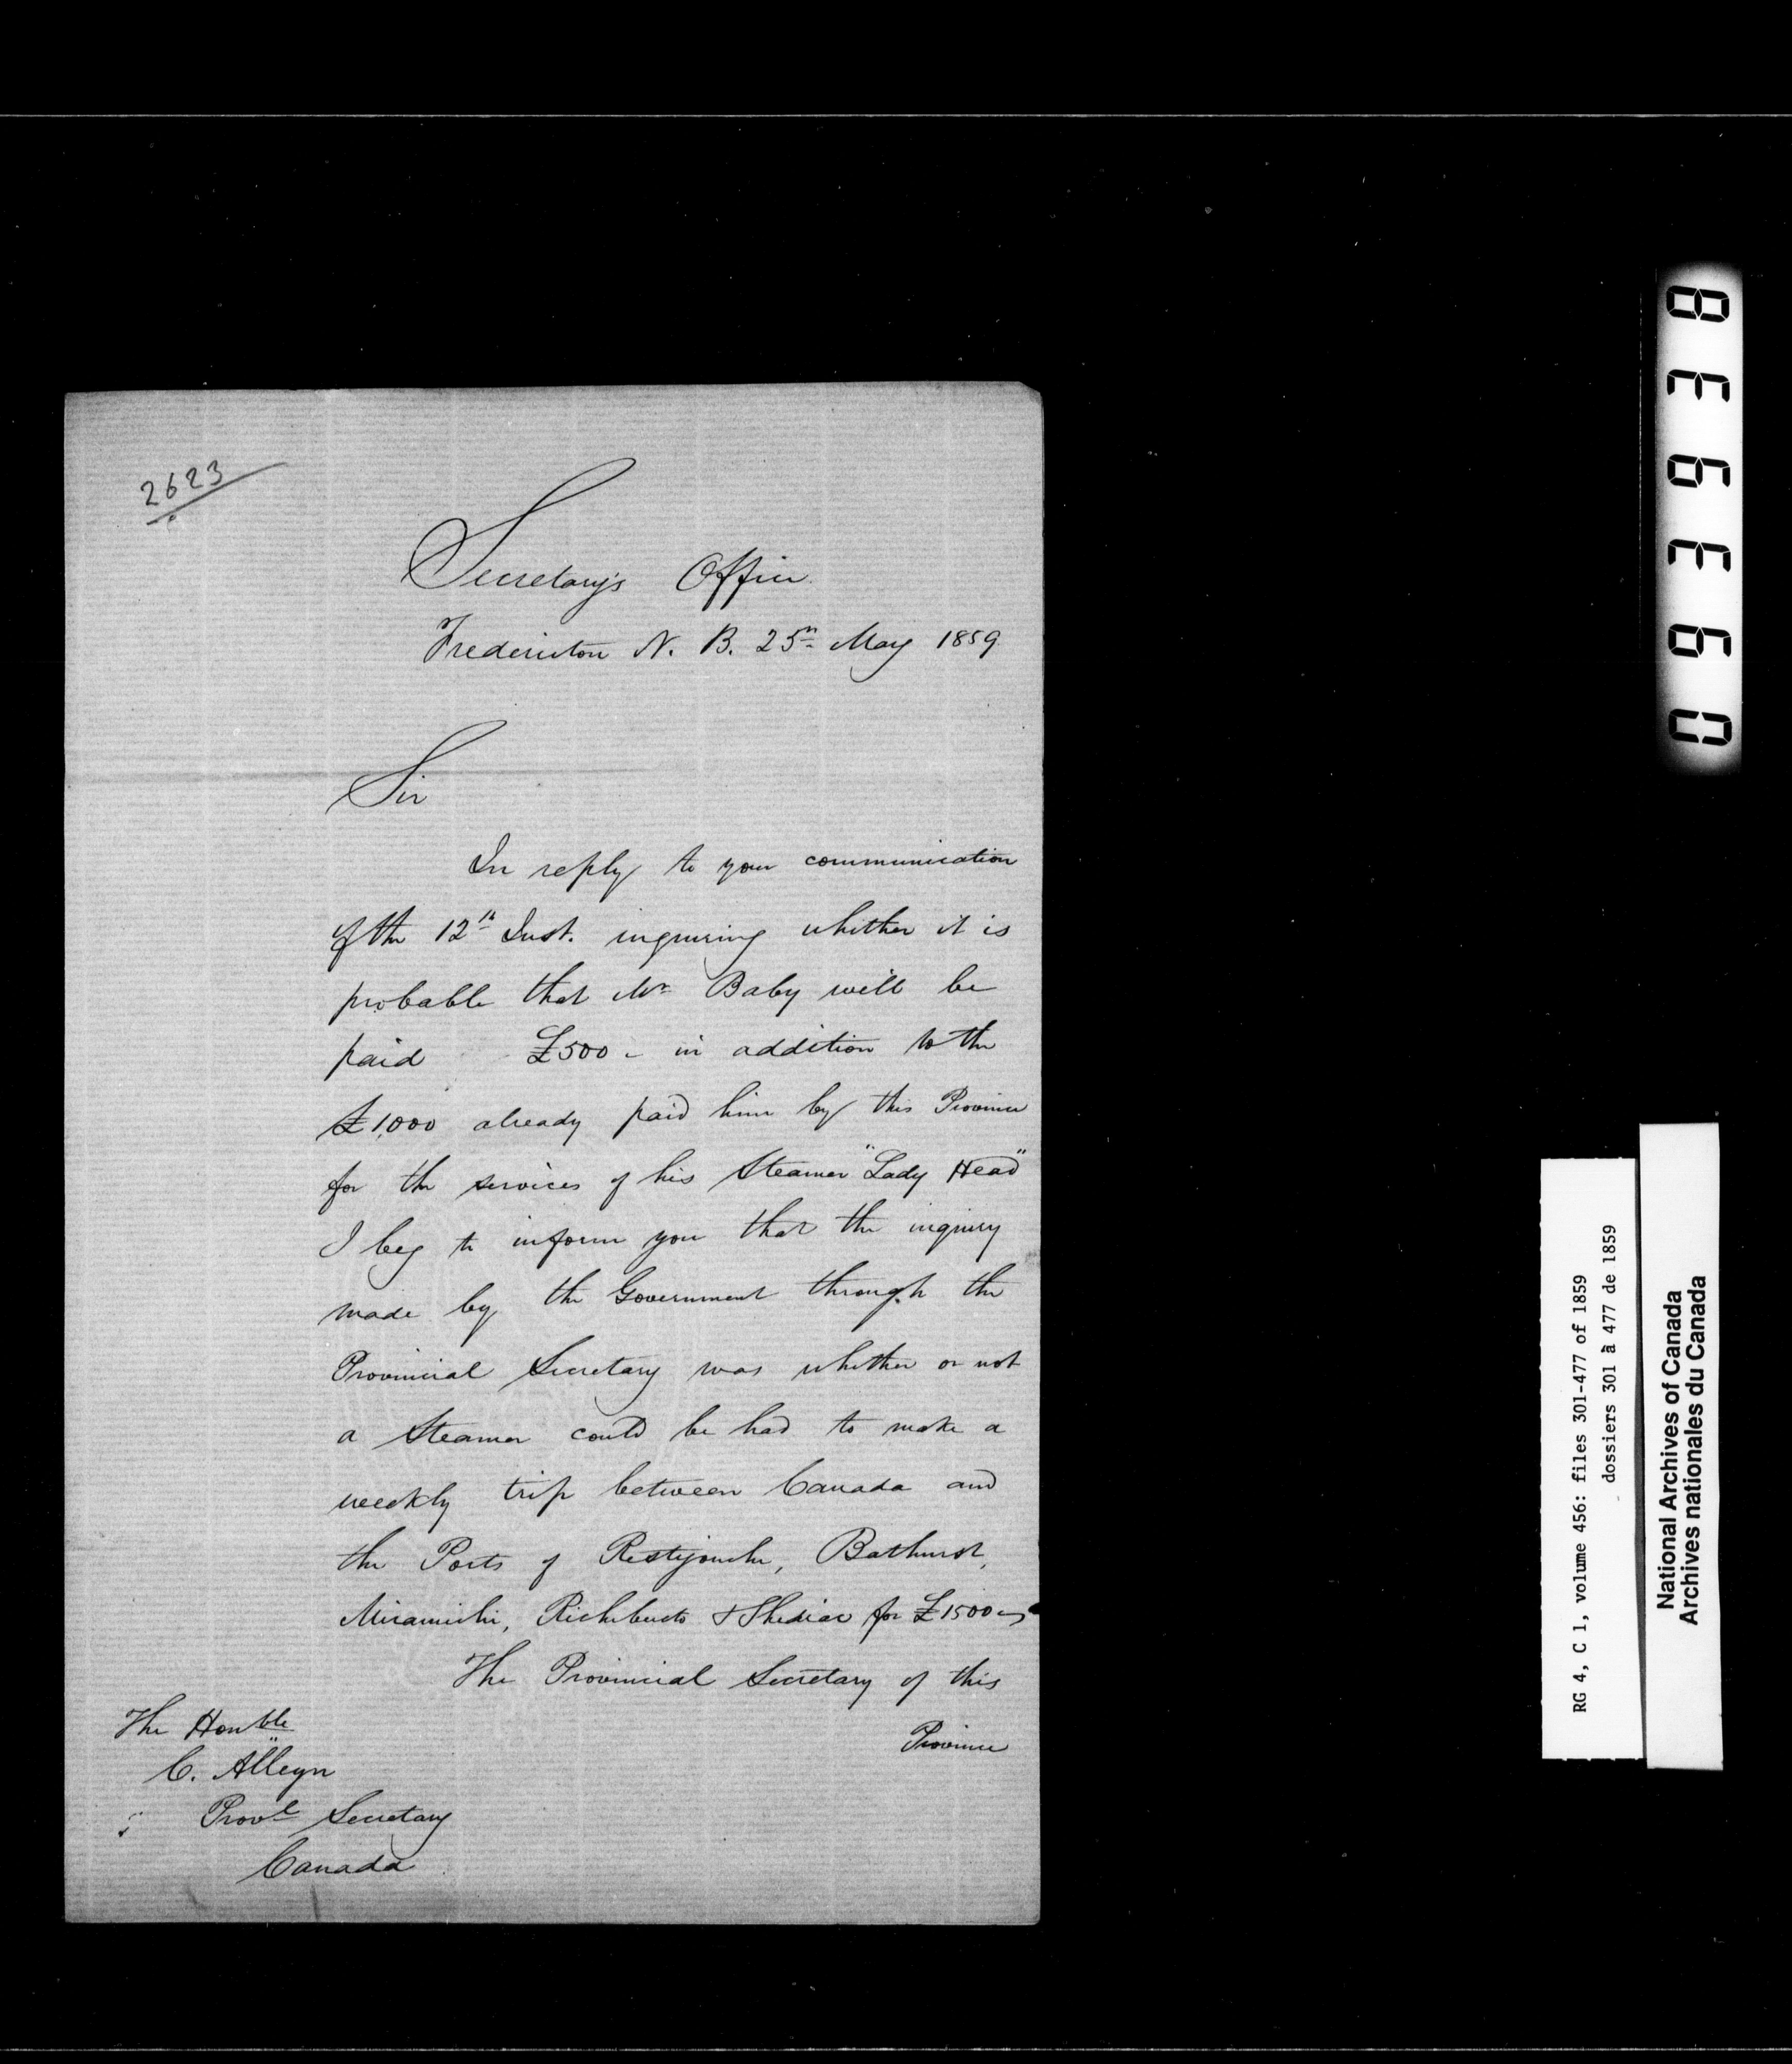 2623
Secretary's Office
Fredericton N. B. 25th May 1859
Sir
In reply to your communication
of the 12th Inst. inquiring whether it is
probable that Mr Baby will be
paid £500 - in addition to the
£1,000 already paid him by this Province
for the services of his Steamer "Lady Head"
I beg to inform you that the inquiry
made by the Government through the
Provincial Secretary was whether or not
a Steamer could be had to make a
weekly trip between Canada and
the Ports of Restigouche, Bathurst,
Miramichi, Richibucto & Shediac for £1500
The Provincial Secretary of this
Province
The Honble
C. Alleyn
Provl Secretary
Canada
RG 4, C 1, volume 456: files 301-477 of 1859
dossiers 301 à 477 de 1859
National Archives of Canada
Archives nationales du Canada
8 3 9 3 9 0